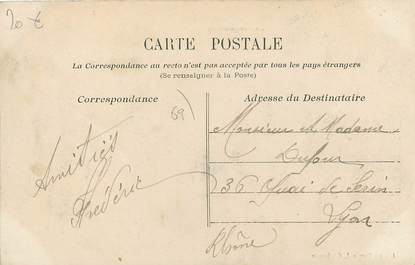 20 €
CARTE POSTALE
La Correspondance au recto n'est pas acceptée par tous les pays étrangers
(Se renseigner à la Poste)
Correspondance
69
Amitiés
Frédéric
Adresse du Destinataire
Monsieur et Madame
Dufour
36 Quai de Serin
Lyon
Rhône